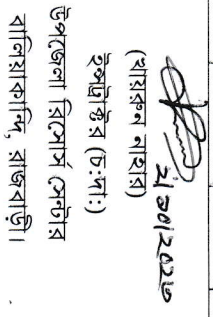 (খায়রুন নাহার)
ইন্সট্রাক্টর (চ:দা:)
উপজেলা রিসোর্স সেন্টার
বালিয়াকান্দি, রাজবাড়ী।